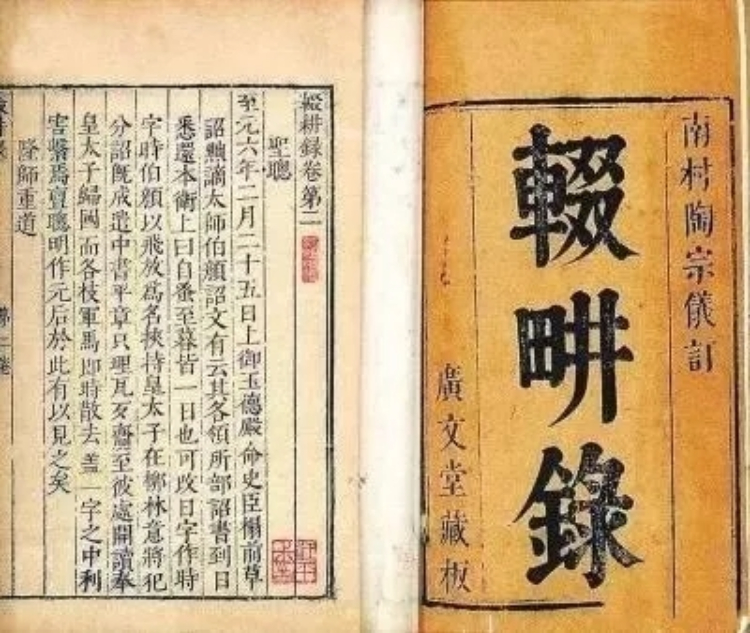 南村陶宗儀訂
輟畊錄
廣文堂藏板
輟耕錄卷第二
聖聰
至元六年二月二十五日上御玉德殿命史臣榻前草
詔黜謫太師伯顏詔文有云其各領所部詔書到日
悉還本衛上曰自蚤至暮皆一日也可改日字作時
字時伯顏以飛放爲名挾持皇太子在栁林意將犯
分詔旣成遣中書平章只理瓦歹齎至彼處開讀奉
皇太子歸國而各枝軍馬即時散去盖一字之中利
害繫焉亶聰明作元后於此有以見之矣
隆師重道